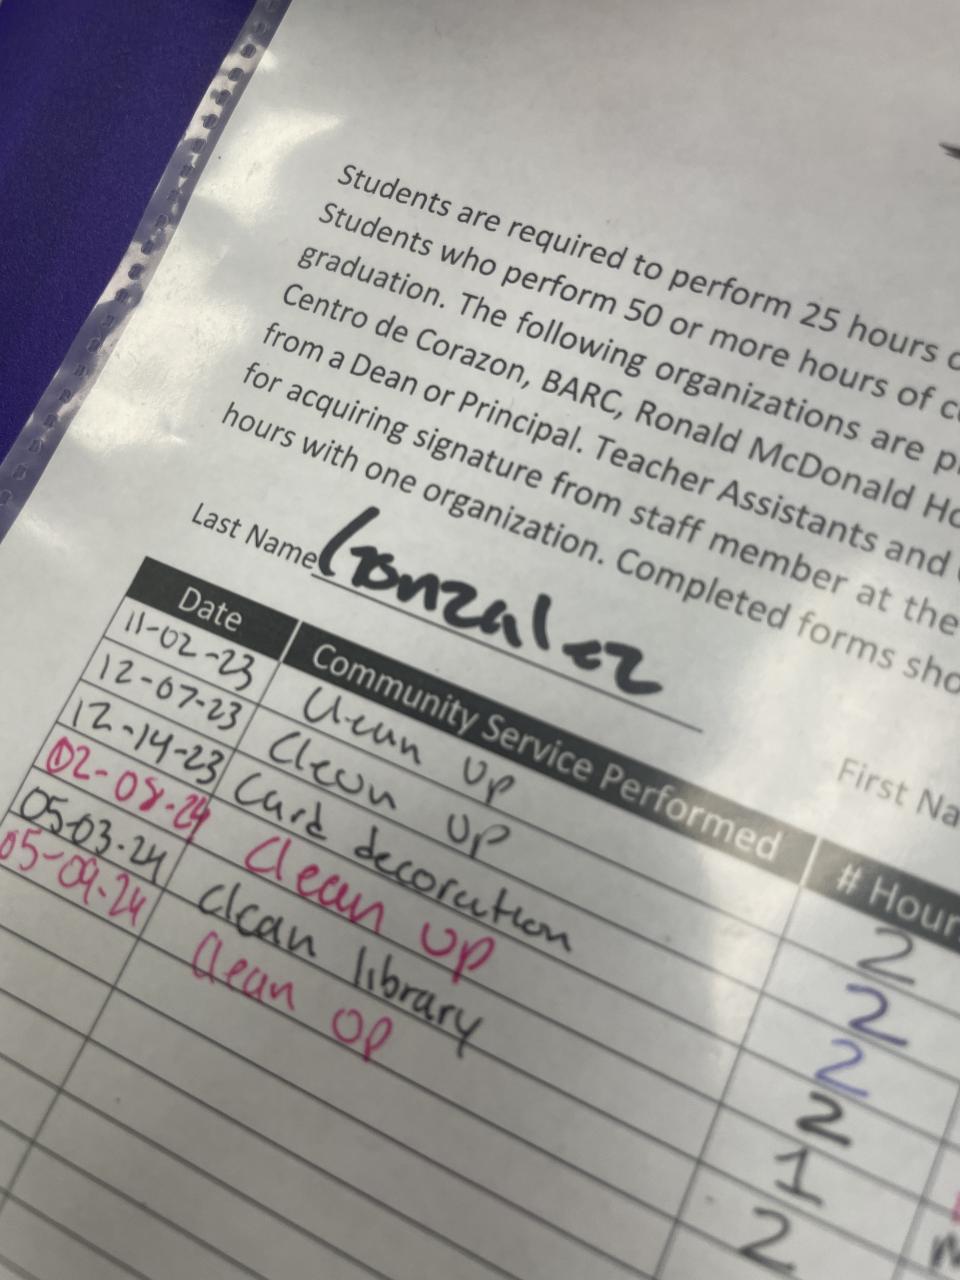 Students are required to perform 25 hours
Students who perform 50 or more hours of
graduation. The following organizations are
Centro de Corazon, BARC, Ronald McDonald
from a Dean or Principal. Teacher Assistants and
for acquiring signature from staff member at the
hours with one organization. Completed forms
Last Name Gonzalez
First
Date Community Service Performed #
11-02-23 Clean up 2
12-07-23 Clean up 2
12-14-23 Card decoration 2
02-08-24 Clean up 2
05-03-24 clean library 1
05-09-24 Clean up 2